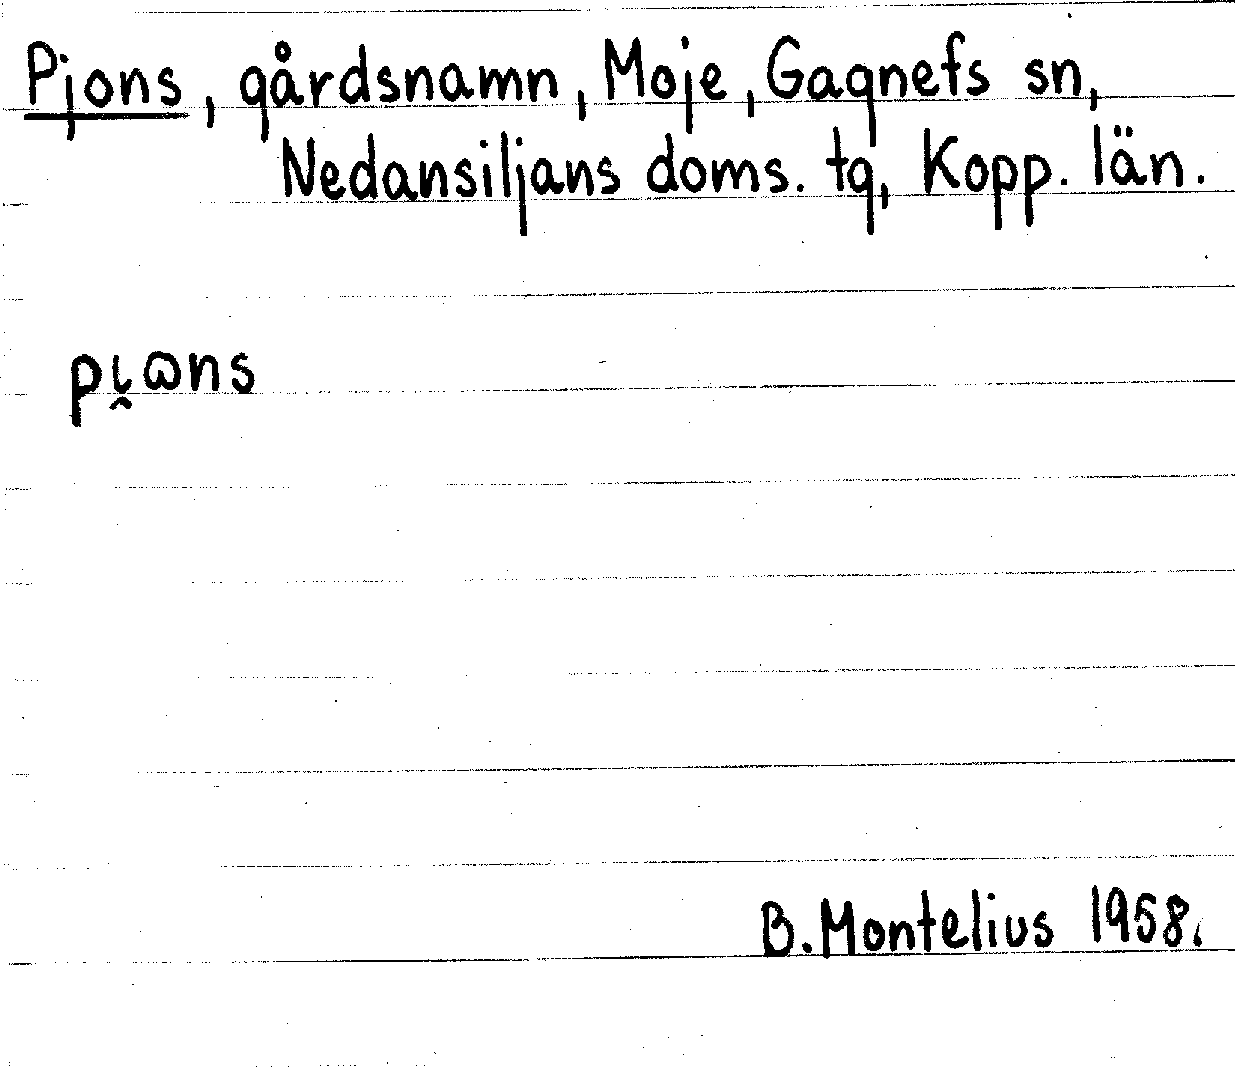 Pjons, gårdsnamn, Moje, Gagnefs sn,
Nedansiljans doms. tg, Kopp. län.
pi̯ꞷns
B. Montelius 1958.